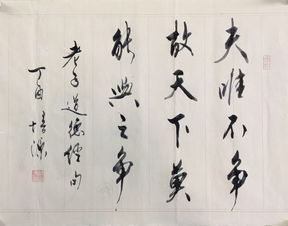 夫唯不争
故天下莫
能与之争
老子道德经句
丁酉 培源